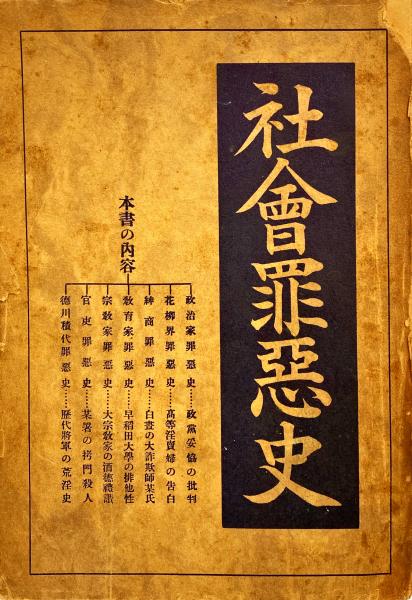 社會罪惡史
本書の內容
政治家罪惡史……政黨妥協の批判
花柳界罪惡史……高等淫賣婦の告白
紳商罪惡史……白晝の大詐欺師某氏
敎育家罪惡史……早稻田大學の排他性
宗敎家罪惡史……大宗敎家の酒德禮讃
官吏罪惡史……某署の拷問殺人
德川積代罪惡史……歷代將軍の荒淫史